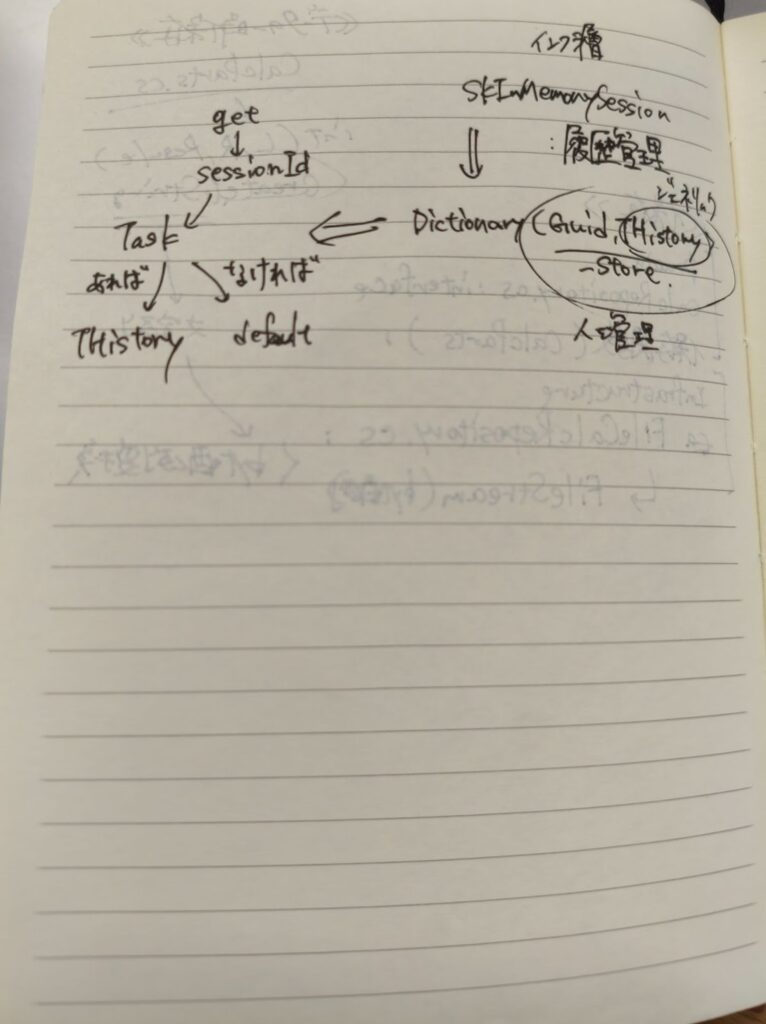 インフラ層
SKInMemorySession
:履歴管理
get
sessionId
ジェネリック
Dictionary (Guid, THistory)
-Store.
Task
あれば
なければ
THistory
default
入口管理